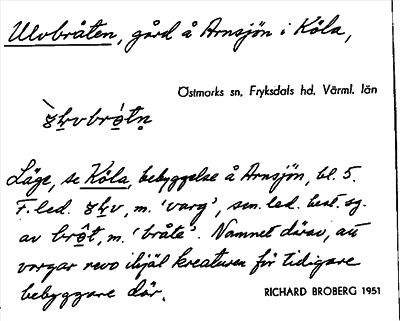 Ulvbråten, gård å Arnsjön i Köla,
Östmarks sn, Fryksdals hd. Värml. län
Läge, se Köla, bebyggelse å Arnsjön, bl. 5.
F. led. m. 'varg', sen. led. best. sg.
av bro̤t, m. 'bråte'. Namnet därav, att
vargar revo ihjäl kreaturen för tidigare
bebyggare där.
RICHARD BROBERG 1951